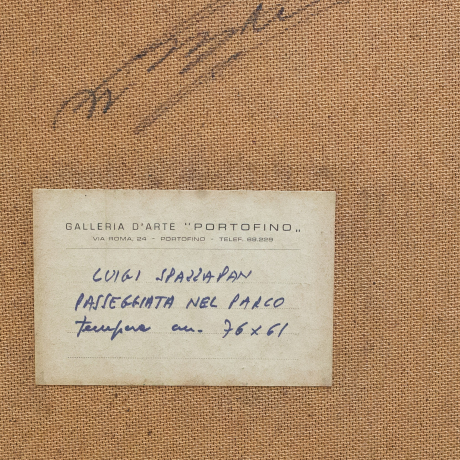 GALLERIA D'ARTE "PORTOFINO„
VIA ROMA, 24 - PORTOFINO - TELEF. 69.229
LUIGI SPAZZAPAN
PASSEGGIATA NEL PARCO
tempera cm. 76x61